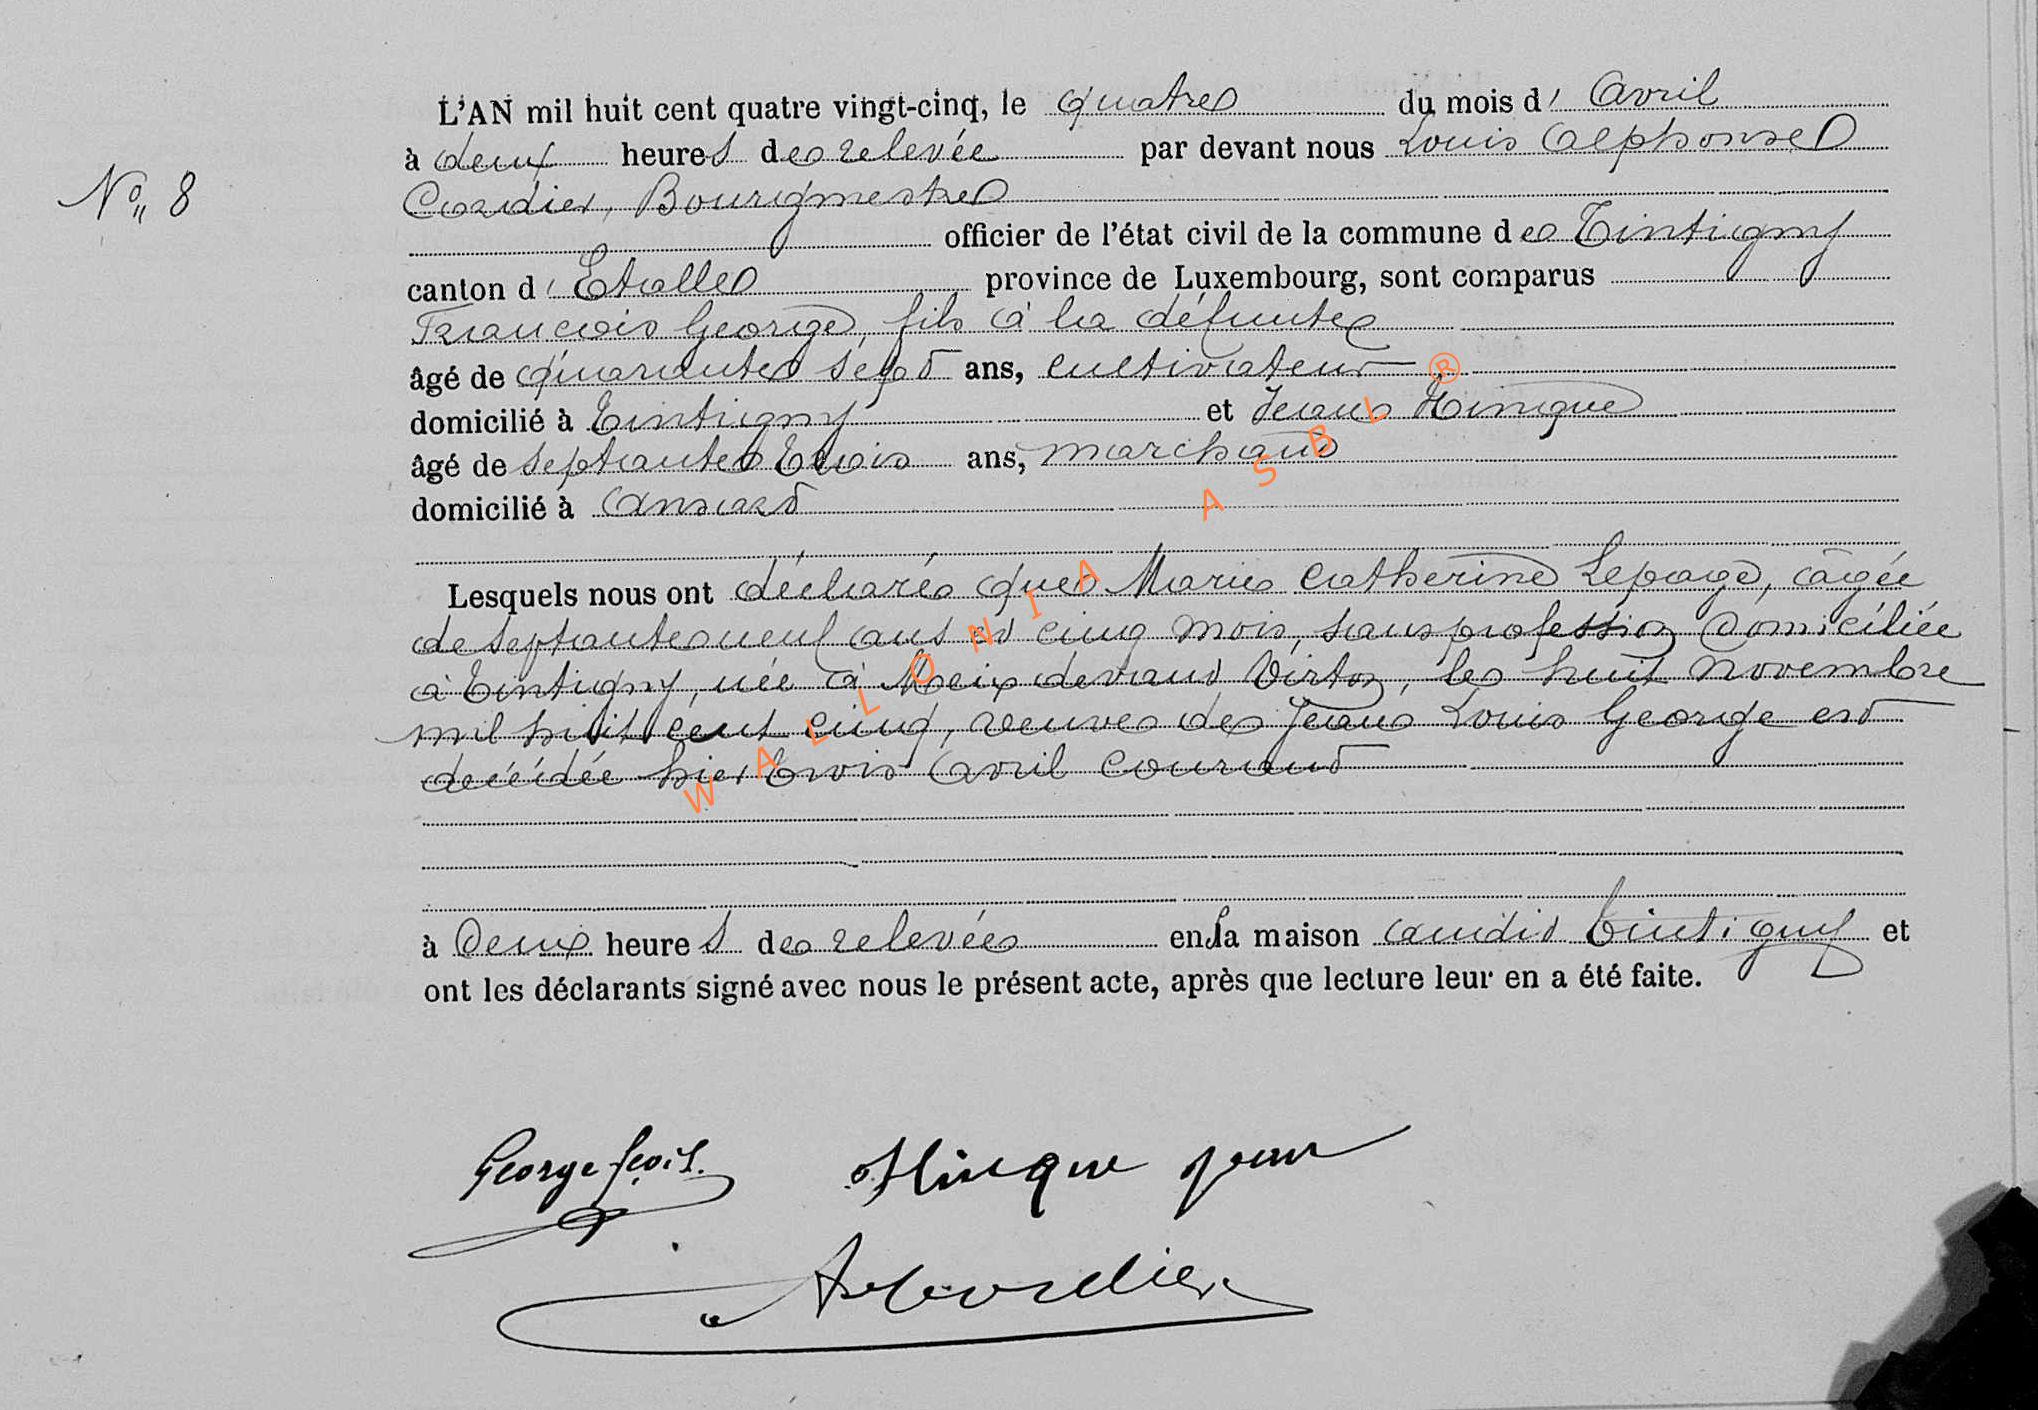 L'AN mil huit cent quatre vingt-cinq, le quatre du mois d' Avril
à deux heures de relevée par devant nous Louis Alphonse
N° 8
Cordier, Bourgmestre
officier de l'état civil de la commune de Tintigny
canton d' Etalle province de Luxembourg, sont comparus
François George, fils à la défunte
âgé de quarante sept ans, cultivateur
domicilié à Tintigny et Jean Hinque
âgé de septante trois ans, marchand
domicilié à Ansart
Lesquels nous ont déclaré que Marie Catherine Lepage, âgée
de septante neuf ans et cinq mois, sans profession domiciliée
à Tintigny, née à Meix devant Virton, le huit novembre
mil huit cent cinq, veuve de Jean Louis George est
décédée hier trois Avril courant
à Deux heures de relevée en sa maison audit Tintigny et
ont les déclarants signé avec nous le présent acte, après que lecture leur en a été faite.
George fçois. Hinque jean
A Cordier
WALLONIA ASBL ®